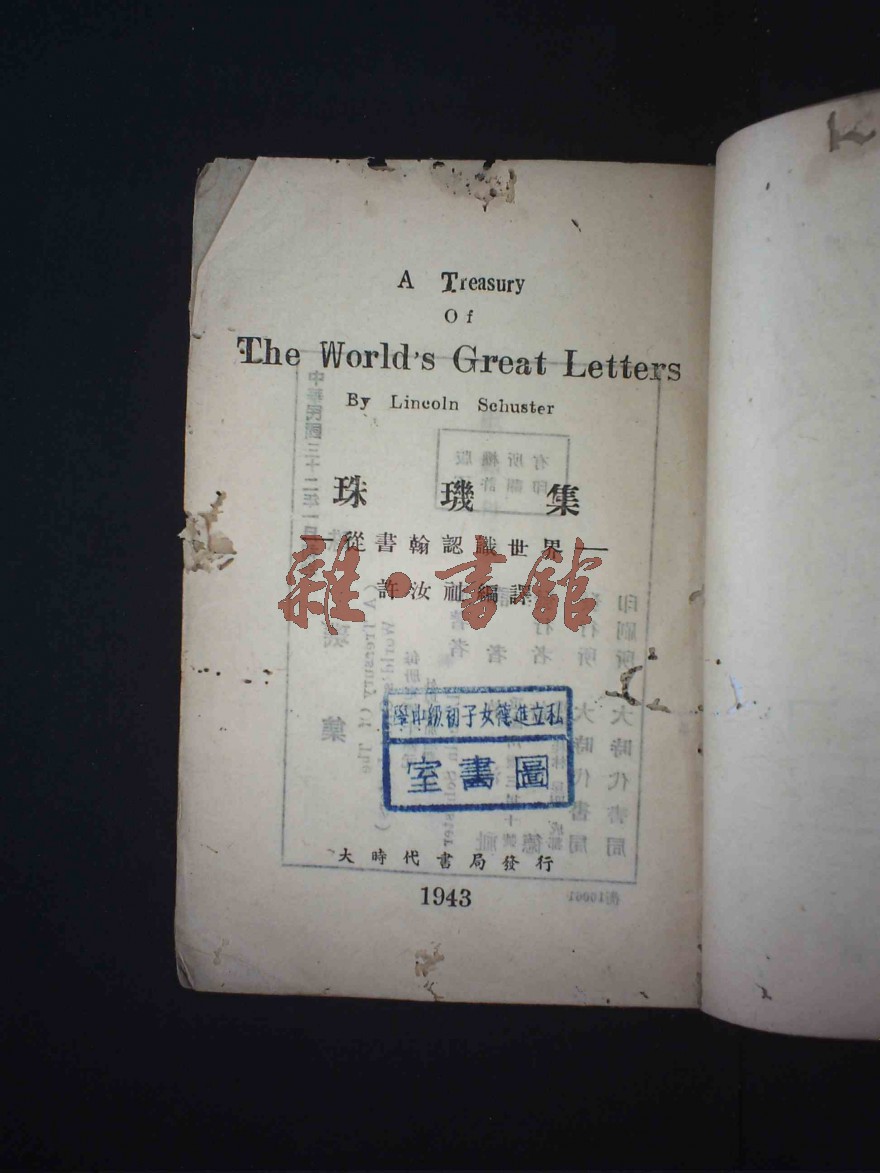 A Treasury
Of
The World's Great Letters
By Lincoln Schuster
珠璣集
—從書翰認識世界—
許汝祉編譯
雜·書館
私立進德女子初級中學
圖書室
大時代書局發行
1943